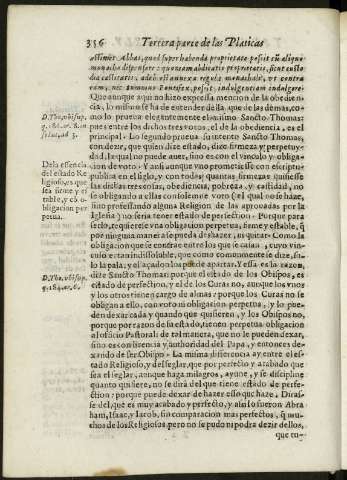 356 Tercera parte de las Platicas
aestimet Abbas, quod super habenda proprietate possit cũ aliquo
monacho dispensare: quoniam abdicatio proprietatis, sicut custo
dia castitatis, adeò est annexa regulæ monachali, vt contra
eam, nec summus Pontifex possit indulgentiam indulgere.
Que aunque aqui no hizo expressa mencion de la obedien
cia, lo mismo se ha de entender della, que de las demas, co-
mo lo prueua elegantemente el mismo Sancto Thomas:
pues entre los dichos tres votos, el de la obediencia, es el
principal. Lo segundo prueua su intento Sancto Thomas,
con dezir, que quien dize estado, dize firmeza, y perpetuy-
dad, la qual no puede auer, sino es con el vinculo y obliga-
cion de voto. Y ansi aunque vno prometiesse con escriptu-
ra publica en el siglo, y con todas quantas firmezas quisiesse
las dichas tres cosas, obediencia, pobreza, y castidad, no
se obligando a ellas con solemne voto (el qual no se haze,
sino professando alguna Religion de las aprouadas por la
Iglesia) no seria tener estado de perfection. Porque para
serlo, se requiere vna obligacion perpetua, firme y estable, q̃
por ninguna manera se pueda deshazer, ni quitar. Como la
obligacion que se contrae entre los que se casan, cuyo vin-
culo es tan indissoluble, que como comunmente se dize, so-
lo la pala, y el açadon los puede apartar. Y essa es la razon,
dize Sancto Thomas: porque el estado de los Obispos, es
estado de perfection, y el de los Curas no, aunque los vnos
y los otros tienen cargo de almas: porque los Curas no se
obligan a ello, con voto ni obligacion perpetua, y lo pue-
den dexar cada y quando que quisieren, y los Obispos no,
porque por razon de su estado, tienen perpetua obligacion
al officio Pastoral: de tal manera, que no le pueden dexar,
sino es con licencia y authoridad del Papa, y entonces de-
xando de ser Obispo. La misma differencia ay entre el es-
tado Religioso, y del seglar, que por perfecto, y acabado que
sea el seglar, aunque haga milagros, ayune, y se discipline
quanto quisiere, no se dirà del que tiene estado de perfe-
ction: porque puede dexar de hazer esso que haze. Dirase-
le del, que es muy acabado y perfecto, y assi lo fueron Abra
ham, Isaac, y Iacob, sin comparacion mas perfectos, q̃ mu-
chos de los Religiosos, pero no se pudo ni podra dezir dellos,
que tu-
D. Tho. vbi sup.
De la essencia
del estado Re
ligioso, es que
sea firme y es
table, y cõ o-
bligacion per
petua.
D. Tho. vbi sup.